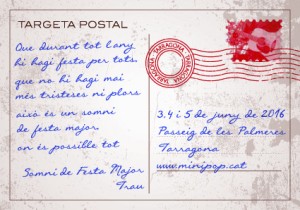 TARGETA POSTAL
Que durant tot l'any
hi hagi festa per tots,
que no hi hagi mai
més tristeses ni plors
això és un somni
de festa major,
on és possible tot
Somni de Festa Major
Trau
TARRAGONA
TARRAGONA
3, 4 i 5 de juny de 2016
Passeig de les Palmeres
Tarragona
www.minipop.cat